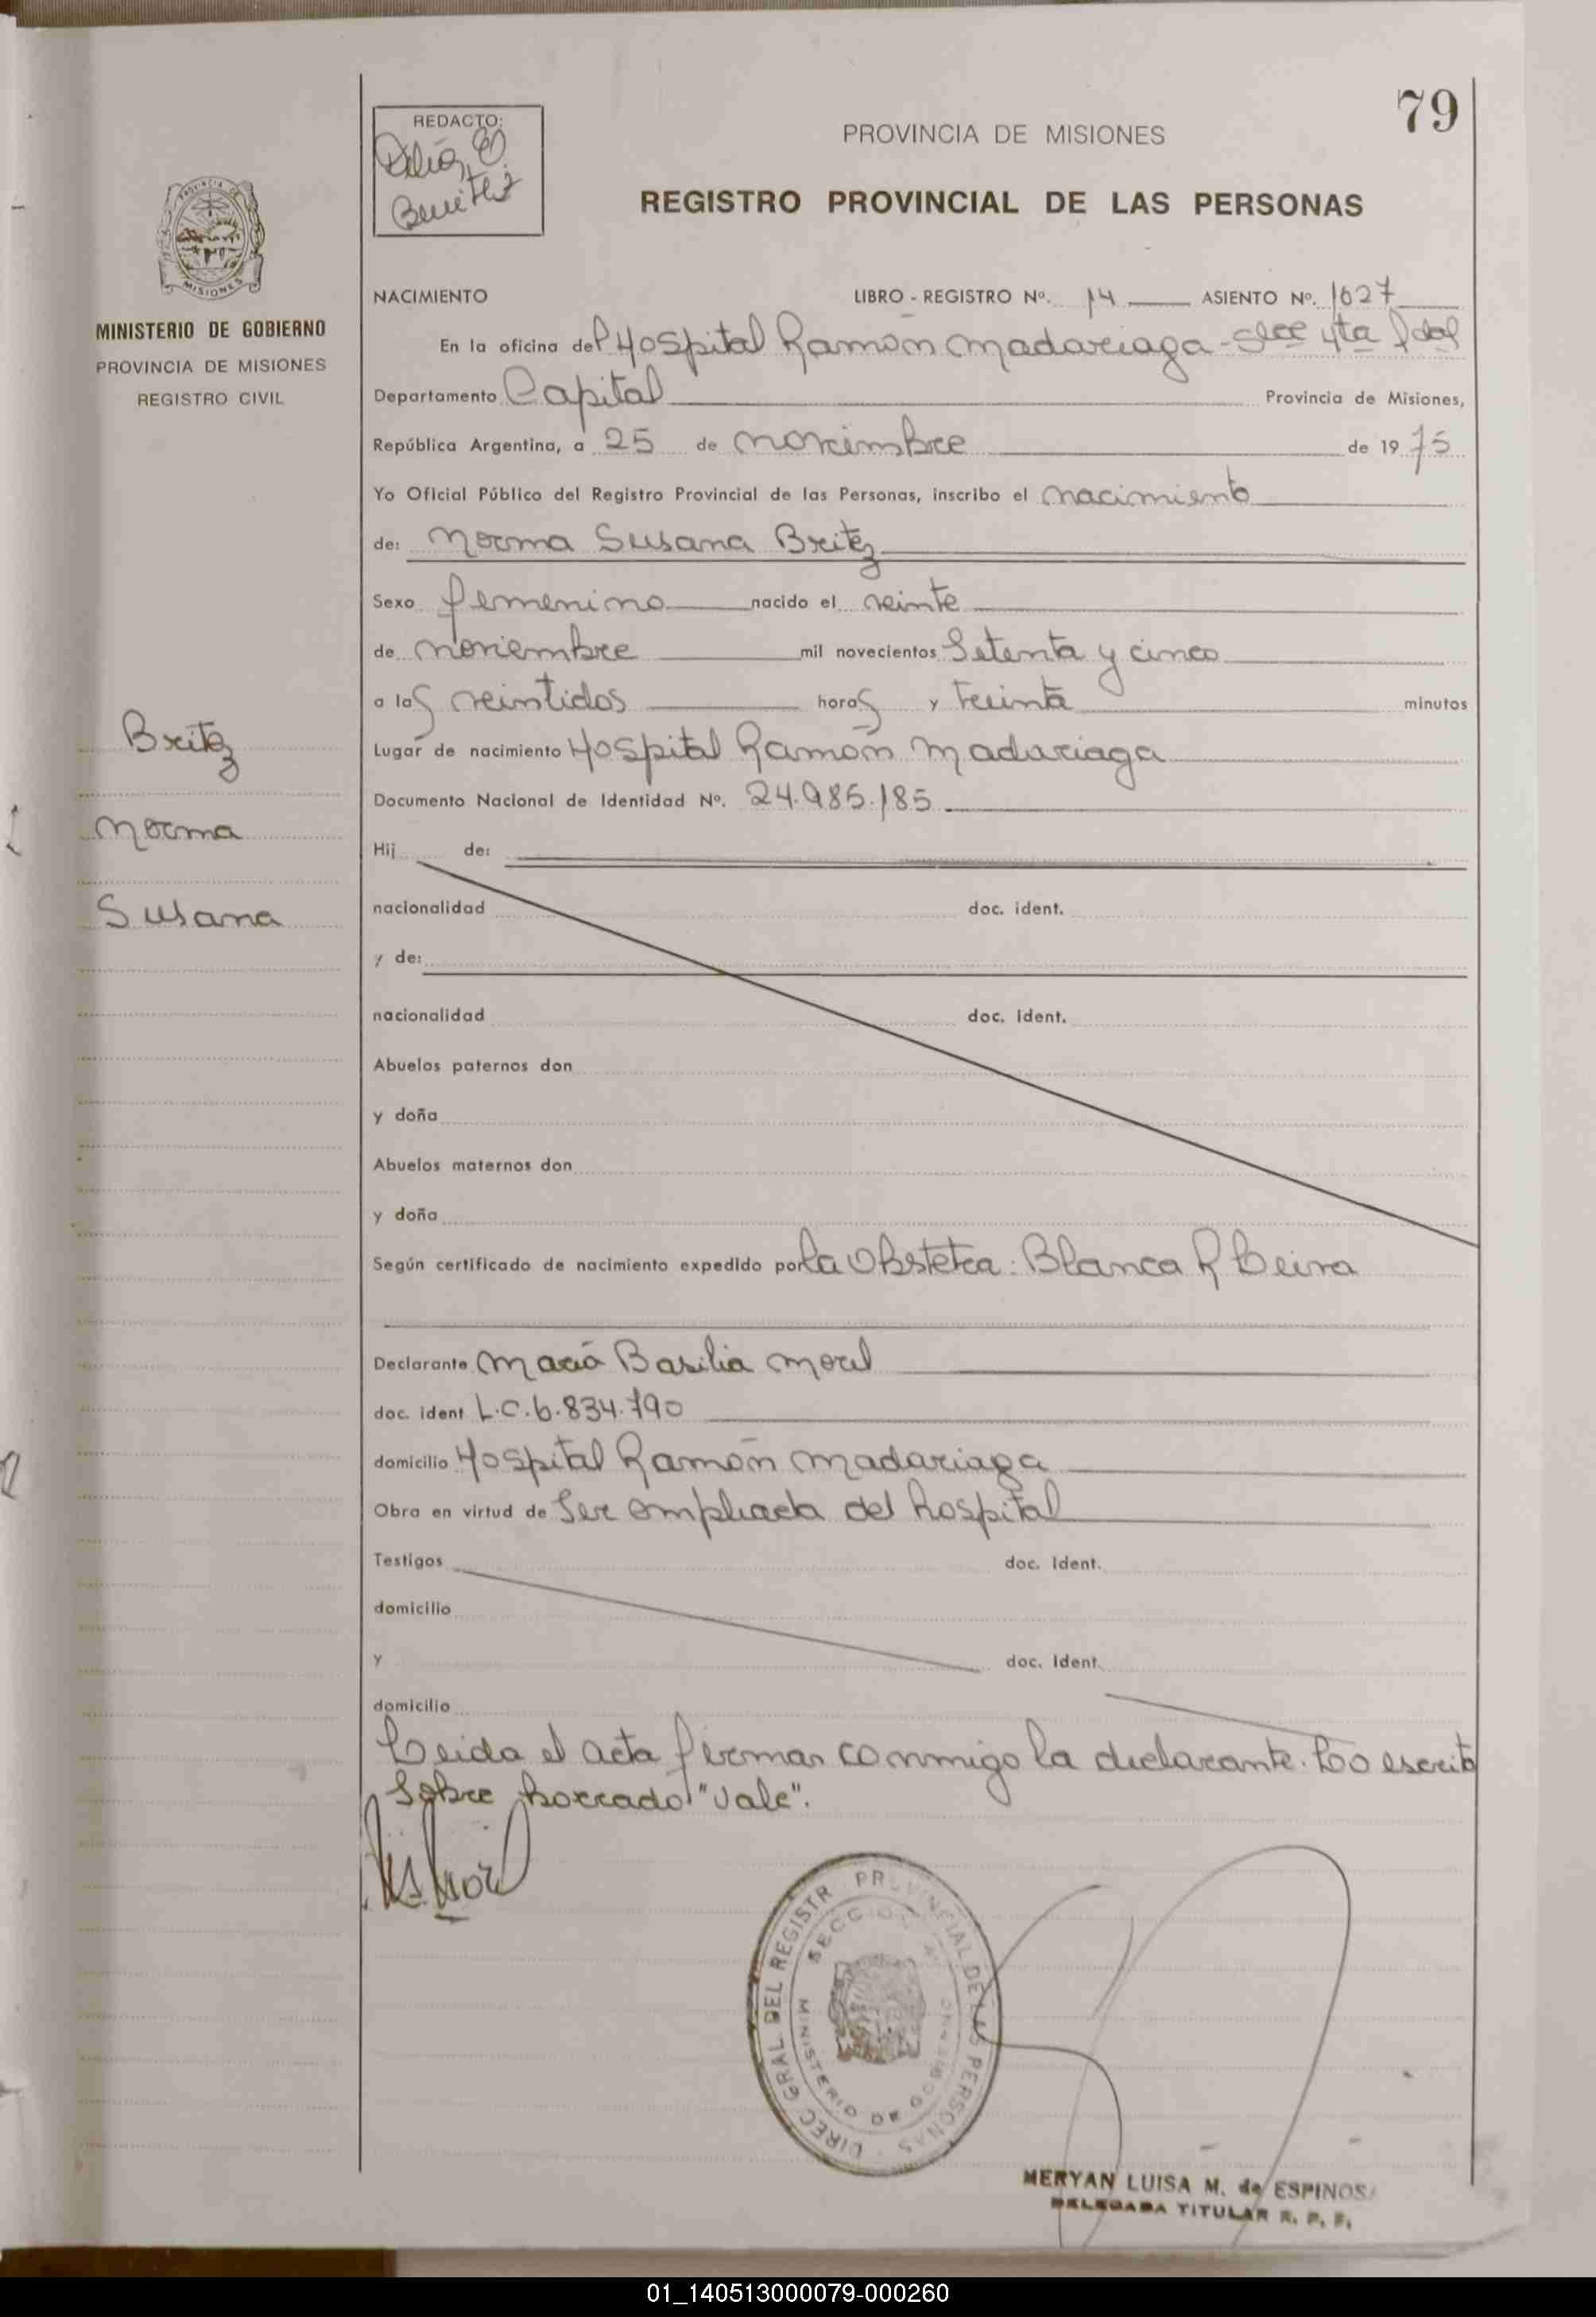 79
REDACTO:
Benítez
PROVINCIA DE MISIONES
REGISTRO PROVINCIAL DE LAS PERSONAS
MISIONES
MINISTERIO DE GOBIERNO
PROVINCIA DE MISIONES
REGISTRO CIVIL
NACIMIENTO LIBRO - REGISTRO Nº. 14 ASIENTO Nº. 1627
En la oficina del Hospital Ramón Madariaga - 4ta
Departamento Capital Provincia de Misiones,
República Argentina, a 25 de noviembre de 1975
Yo Oficial Público del Registro Provincial de las Personas, inscribo el nacimiento
de: Norma Susana Britez
Sexo femenino nacido el veinte
de noviembre mil novecientos Setenta y cinco
a las veintidos horas y treinta minutos
Lugar de nacimiento Hospital Ramón Madariaga
Documento Nacional de Identidad Nº. 24.985.185
Britez
Norma
Susana
Hij de:
nacionalidad doc. ident.
y de:
nacionalidad doc. ident.
Abuelos paternos don
y doña
Abuelos maternos don
y doña
Según certificado de nacimiento expedido por la Obstetra: Blanca R Leiva
Declarante María Basilia Morel
doc. ident L.C. 6.834.790
domicilio Hospital Ramón Madariaga
Obra en virtud de Ser empleada del hospital
Testigos doc. ident.
domicilio
y doc. ident.
domicilio
Leida el acta firman conmigo la declarante. Lo escrito
Sobre borrado "Vale".
DIREC GRAL DEL REGISTR PROVINCIAL DE LAS PERSONAS
SECCION
MINISTERIO DE GOBIERNO
MERYAN LUISA M. de ESPINOS
DELEGADA TITULAR R. P. P.
01_140513000079-000260